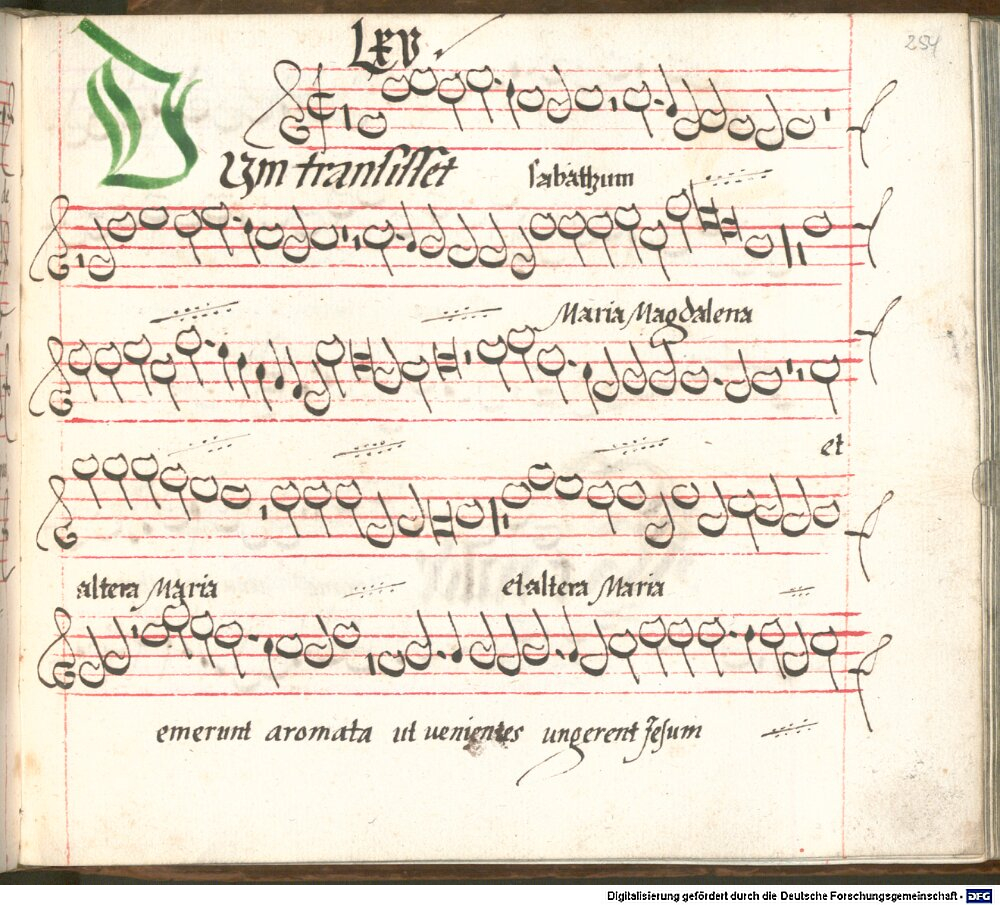 LXV.
254
DUm transisset sabathum
Maria Magdalena
et
altera Maria et altera Maria
emerunt aromata ut venientes ungerent Jesum
Digitalisierung gefördert durch die Deutsche Forschungsgemeinschaft - DFG